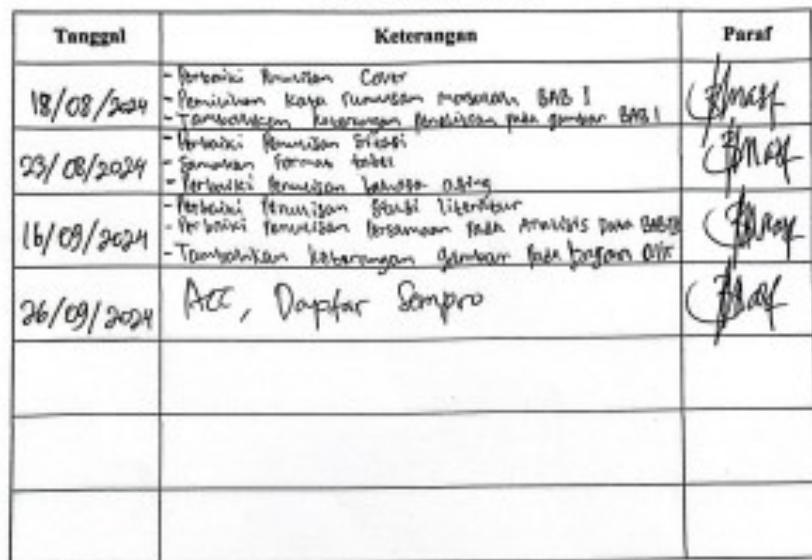 Tanggal Keterangan Paraf
- Perbaiki Penulisan Cover
18/08/2024 - Pemilihan Kata rumusan masalah BAB I
- Tambahkan keterangan Penelitian pada gambar BAB I
- Perbaiki Penulisan Sitasi
23/08/2024 - Samakan format tabel
- Perbaiki Penulisan bahasa asing
- Perbaiki Penulisan Studi literatur
16/09/2024 - Perbaiki Penulisan Persamaan Pada Analisis Data BAB
- Tambahkan keterangan gambar Pada
26/09/2024 ACC, Daftar Sempro